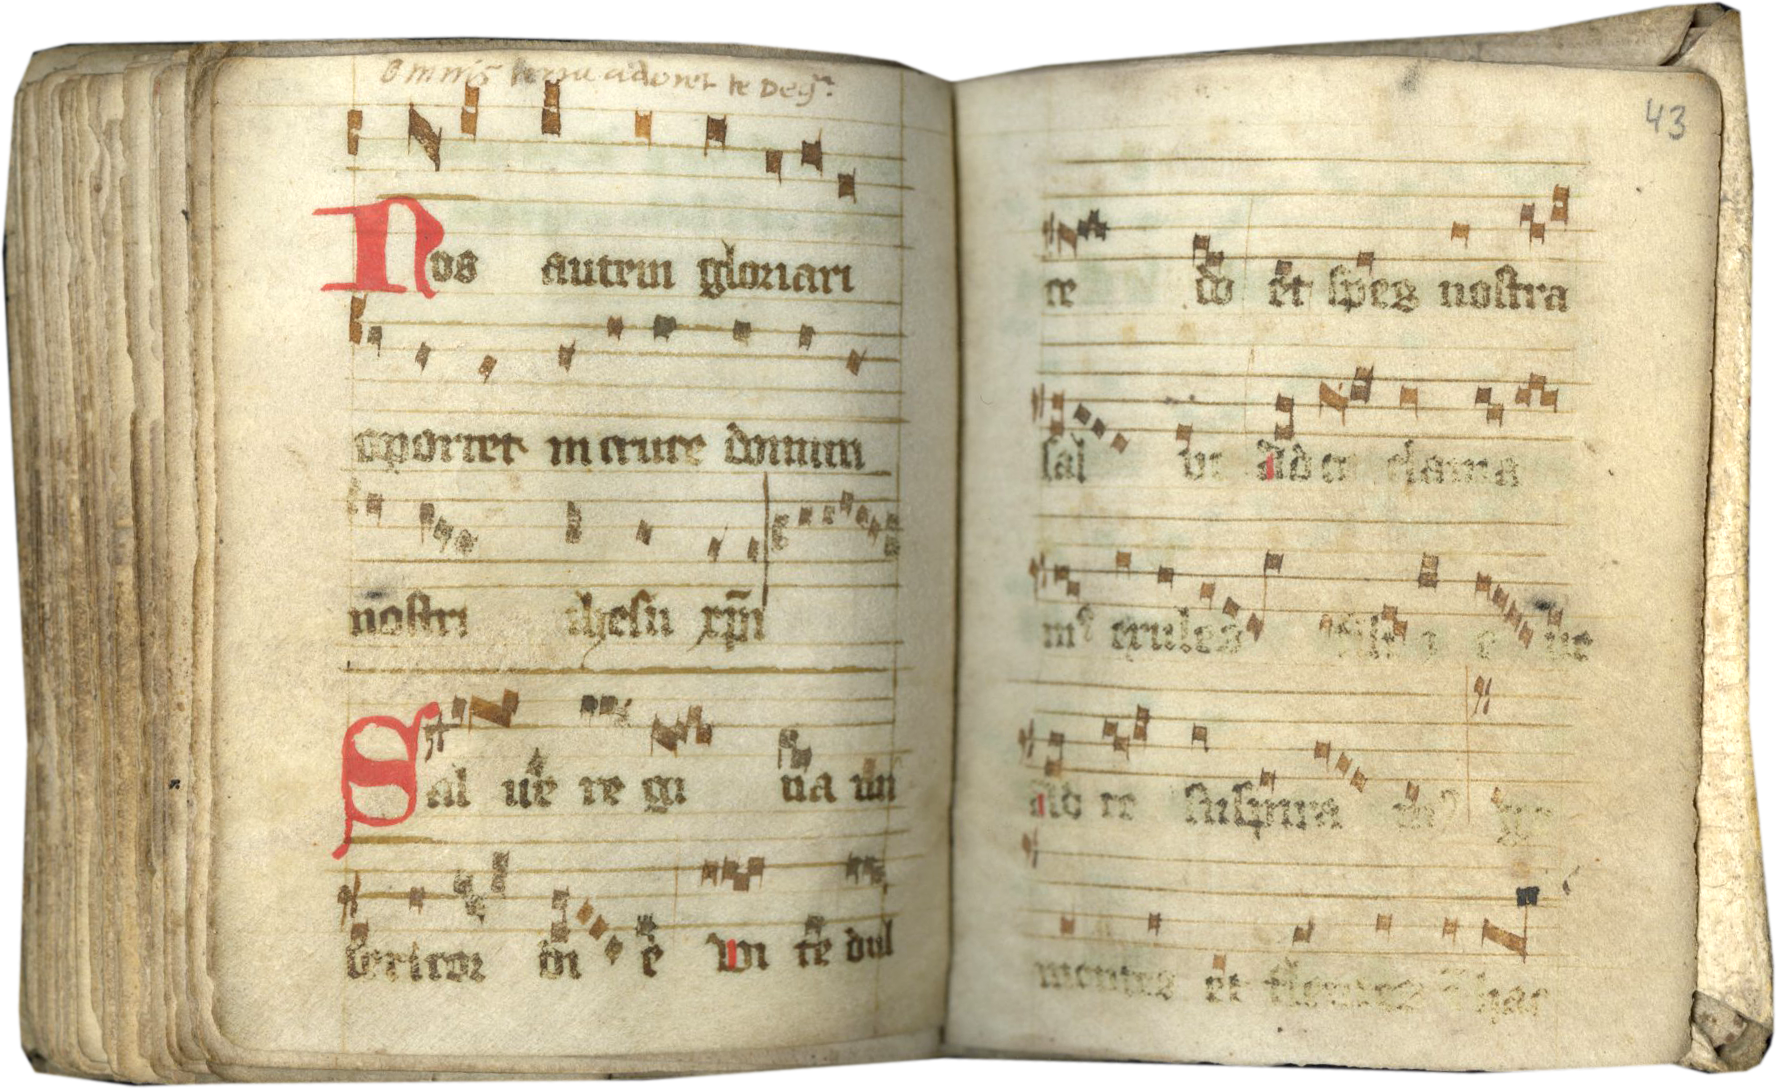 Omnis terra adoret te Deus
Nos autem gloriari
oportet in cruce domini
nostri ihesu xp̄i
Sal ue re gi na mi
sericor di e Vi te dul
43
ce do et spes nostra
sal ue Ad te clama
mꝰ exules filii e ue
Ad te suspira mꝰ ge
mentes et flentes